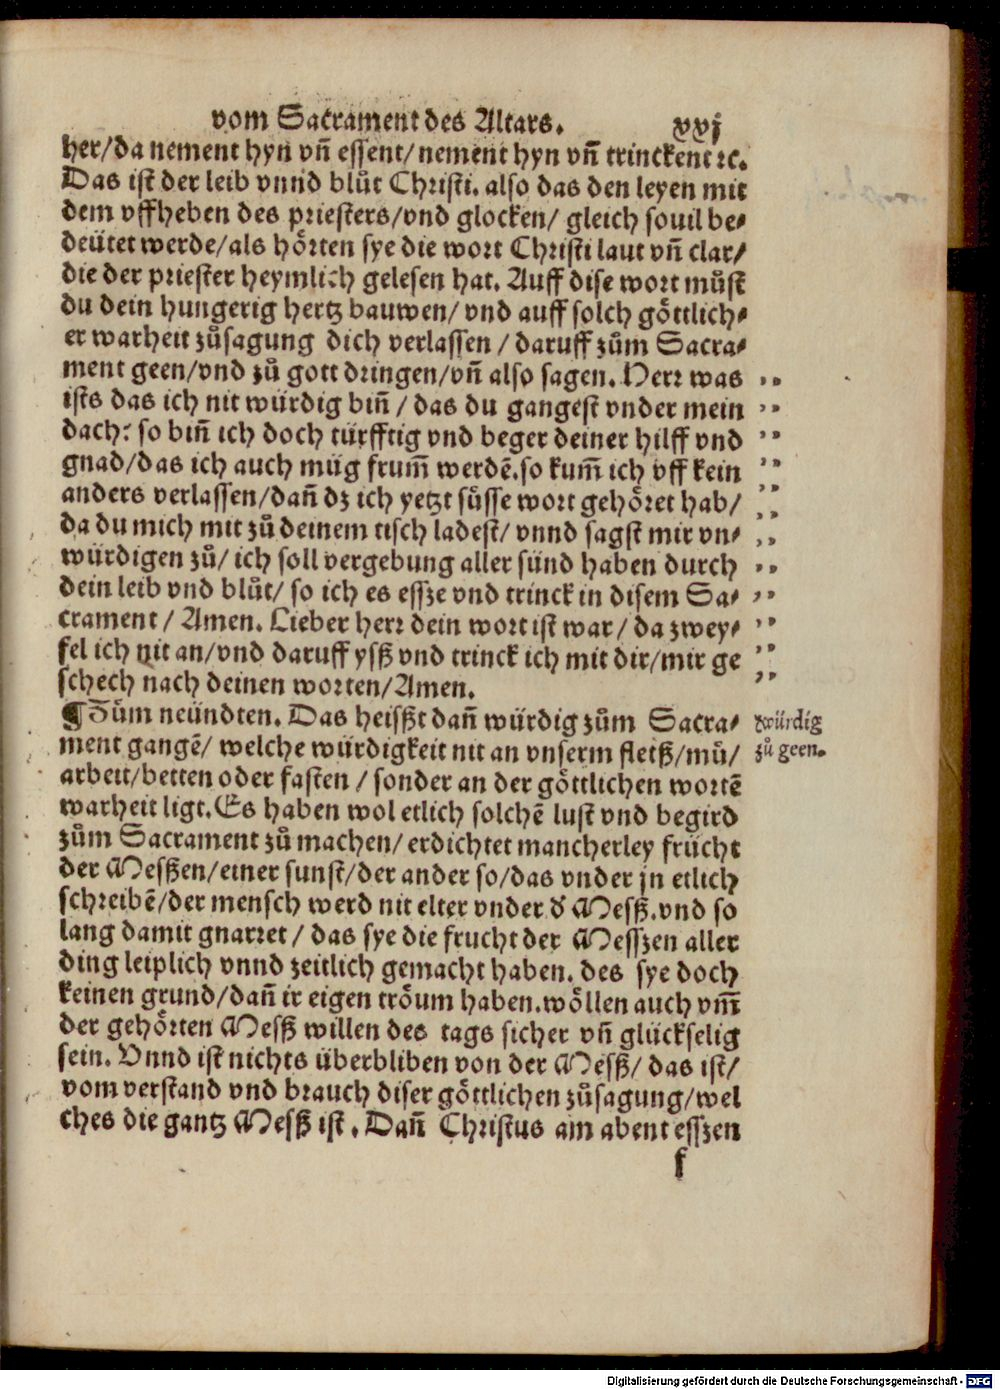 vom Sacrament des Altars. xxj
her/da nement hyn vñ essent/nement hyn vñ trinckent ꝛc.
Das ist der leib vnnd blůt Christi. also das den leyen mit
dem vffheben des priesters/vnd glocken/ gleich souil be⸗
deütet werde/als hörten sye die wort Christi laut vñ clar/
die der priester heymlich gelesen hat. Auff dise wort můst
du dein hungerig hertz bauwen/ vnd auff solch göttlich⸗
er warheit zůsagung dich verlassen / daruff zům Sacra⸗
ment geen/vnd zů gott dringen/vñ also sagen. Herr was ,,
ists das ich nit würdig biñ / das du gangest vnder mein ,,
dach: so biñ ich doch türfftig vnd beger deiner hilff vnd ,,
gnad/das ich auch müg frum̃ werdẽ.so kum̃ ich vff kein ,,
anders verlassen/dañ dz ich yetzt süsse wort gehöret hab/ ,,
da du mich mit zů deinem tisch ladest/ vnnd sagst mir vn⸗ ,,
würdigen zů/ ich soll vergebung aller sünd haben durch ,,
dein leib vnd blůt/ so ich es essze vnd trinck in disem Sa⸗ ,,
crament / Amen. Lieber herr dein wort ist war / da zwey⸗ ,,
fel ich nit an/vnd daruff ysß vnd trinck ich mit dir/mir ge ,,
schech nach deinen worten/Amen. ,,
¶Zům neündten. Das heisßt dañ würdig zům Sacra⸗ würdig
ment gangẽ/ welche würdigkeit nit an vnserm fleiß/mů/ zů geen.
arbeit/betten oder fasten / sonder an der göttlichen wortẽ
warheit ligt. Es haben wol etlich solchẽ lust vnd begird
zům Sacrament zů machen/ erdichtet mancherley frücht
der Mesßen/einer sunst/der ander so/das vnder jn etlich
schreibẽ/der mensch werd nit elter vnder d' Mesß.vnd so
lang damit gnarret / das sye die frucht der Messzen aller
ding leiplich vnnd zeitlich gemacht haben. des sye doch
keinen grund/dañ ir eigen tröum haben.wöllen auch vm̃
der gehörten Mesß willen des tags sicher vñ glückselig
sein. Vnnd ist nichts überbliben von der Mesß/ das ist/
vom verstand vnd brauch diser göttlichen zůsagung/wel
ches die gantz Mesß ist . Dañ Christus am abent esszen
f
Digitalisierung gefördert durch die Deutsche Forschungsgemeinschaft - DFG